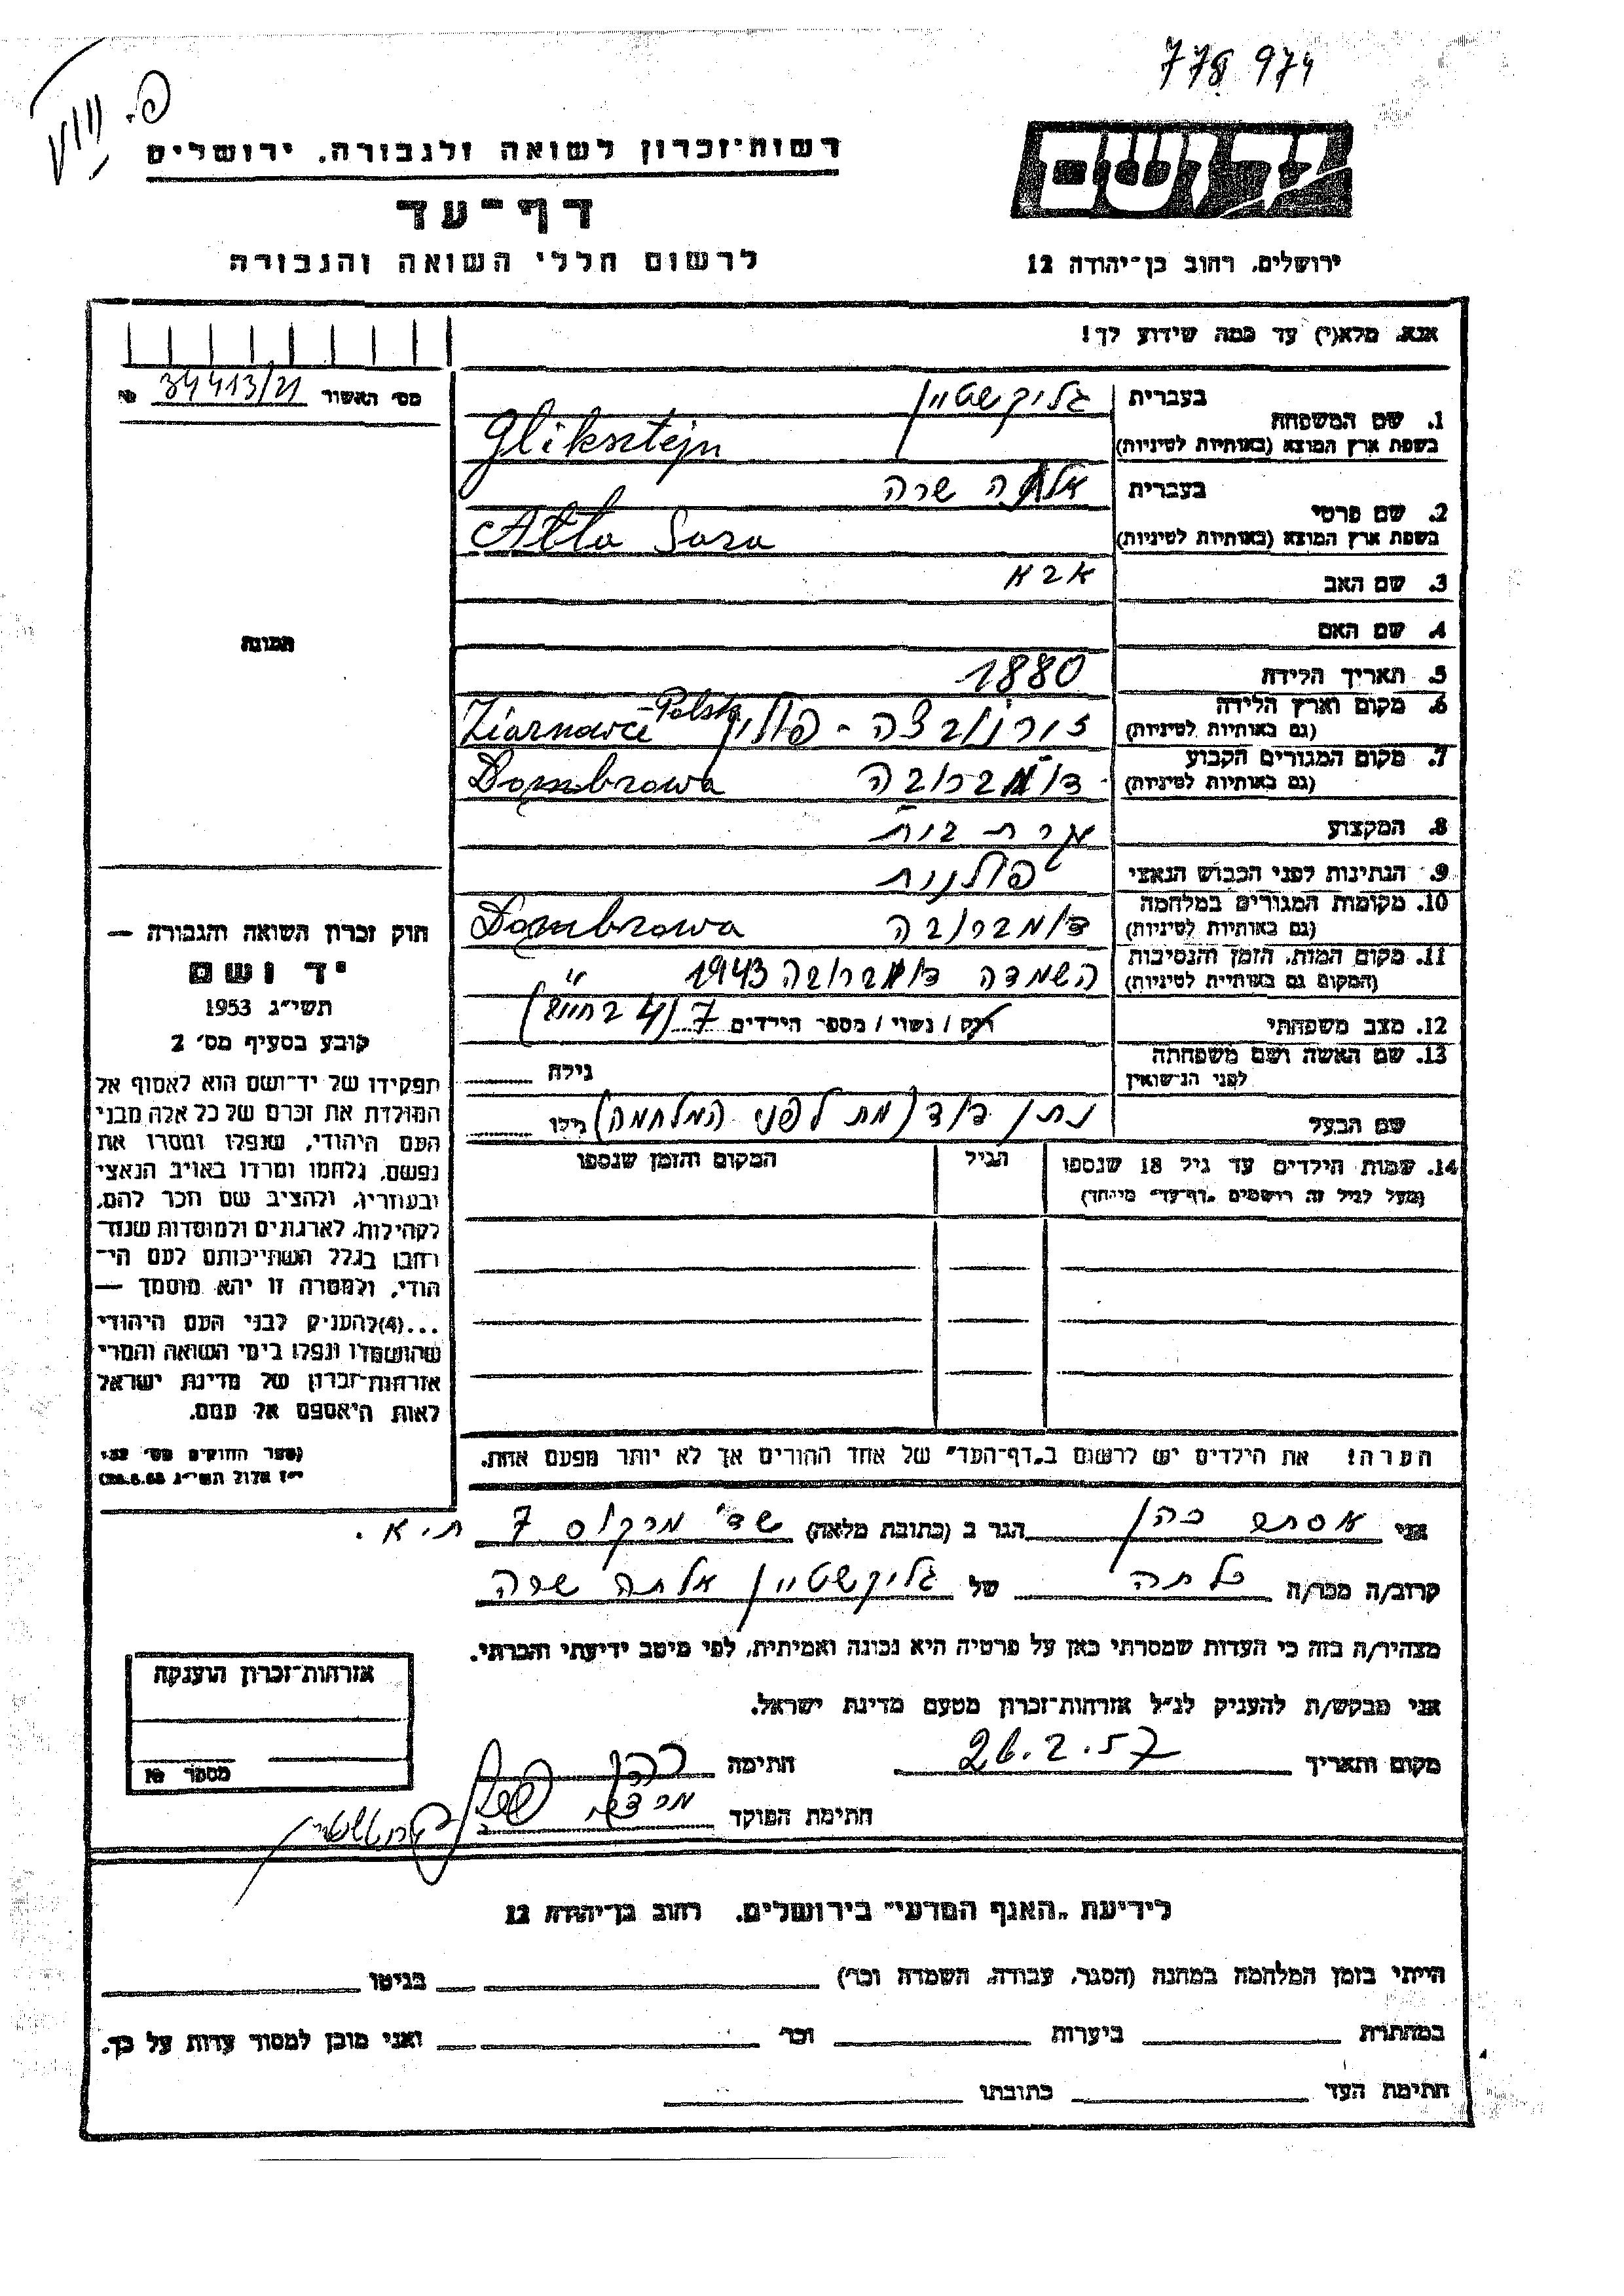 778 974
רשות־זכרון לשואה ולגבורה, ירושלים
דף־עד
לרשום חללי השואה והגבורה
יד ושם
ירושלים, רחוב בן־יהודה 12
אנא, מלא(י) עד כמה שידוע לך!
מס׳ האשור 34413/21 №
1. שם המשפחה בעברית גליקשטיין
בשפת ארץ המוצא (באותיות לטיניות) Gliksztejn
2. שם פרטי בעברית אלתה שרה
בשפת ארץ המוצא (באותיות לטיניות) Alta Sara
3. שם האב אבא
4. שם האם
5. תאריך הלידה 1880
6. מקום וארץ הלידה
(גם באותיות לטיניות) פולין - Ziarnowce Polska
7. מקום המגורים הקבוע
(גם באותיות לטיניות) דומברובה Dombrowa
8. המקצוע עקרת בית
9. הנתינות לפני הכבוש הנאצי פולנית
10. מקומות המגורים במלחמה
(גם באותיות לטיניות) דומברובה Dombrowa
11. מקום המות, הזמן והנסיבות
(המקום גם באותיות לטיניות) השמדה דומברובה 1943 "
12. מצב משפחתי רוק / נשוי / מספר הילדים 7 (4 בחיים)
13. שם האשה ושם משפחתה
לפני הנישואין גילה
שם הבעל נתן דוד (מת לפני המלחמה) גילו
14. שמות הילדים עד גיל 18 שנספו
(מעל לגיל זה רושמים „דף־עד" מיוחד)
הגיל
המקום והזמן שנספו
הערה! את הילדים יש לרשום ב„דף־העד" של אחד ההורים אך לא יותר מפעם אחת.
תמונה
חוק זכרון השואה והגבורה —
יד ושם
תשי״ג 1953
קובע בסעיף מס׳ 2
תפקידו של יד־ושם הוא לאסוף אל
המולדת את זכרם של כל אלה מבני
העם היהודי, שנפלו ומסרו את
נפשם, נלחמו ומרדו באויב הנאצי
ובעוזריו, ולהציב שם וזכר להם,
לקהילות, לארגונים ולמוסדות שנח־
רבו בגלל השתייכותם לעם הי־
הודי, ולמטרה זו יהא מוסמך —
...(4) להעניק לבני העם היהודי
שהושמדו ונפלו בימי השואה והמרי
אזרחות־זכרון של מדינת ישראל
לאות היאספם אל עמם.
(ספר החוקים מס׳ 132
י״ז אלול תשי״ג
אני אסתר כהן הגר ב (כתובת מלאה) שד׳ מרקוס 7 ת.א.
קרוב/ה מכר/ה כלתה של גליקשטיין אלתה שרה
מצהיר/ה בזה כי העדות שמסרתי כאן על פרטיה היא נכונה ואמיתית, לפי מיטב ידיעתי והכרתי.
אני מבקש/ת להעניק לנ״ל אזרחות־זכרון מטעם מדינת ישראל.
מקום ותאריך 26.2.57 חתימה כהן
חתימת הפוקד
אזרחות־זכרון הוענקה
מספר №
לידיעת „האגף המדעי" בירושלים, רחוב בן־יהודה 12
הייתי בזמן המלחמה במחנה (הסגר, עבודה, השמדה וכו׳) בגיטו
במחתרת ביערות וכו׳ ואני מוכן למסור עדות על כך.
חתימת העד כתובתו